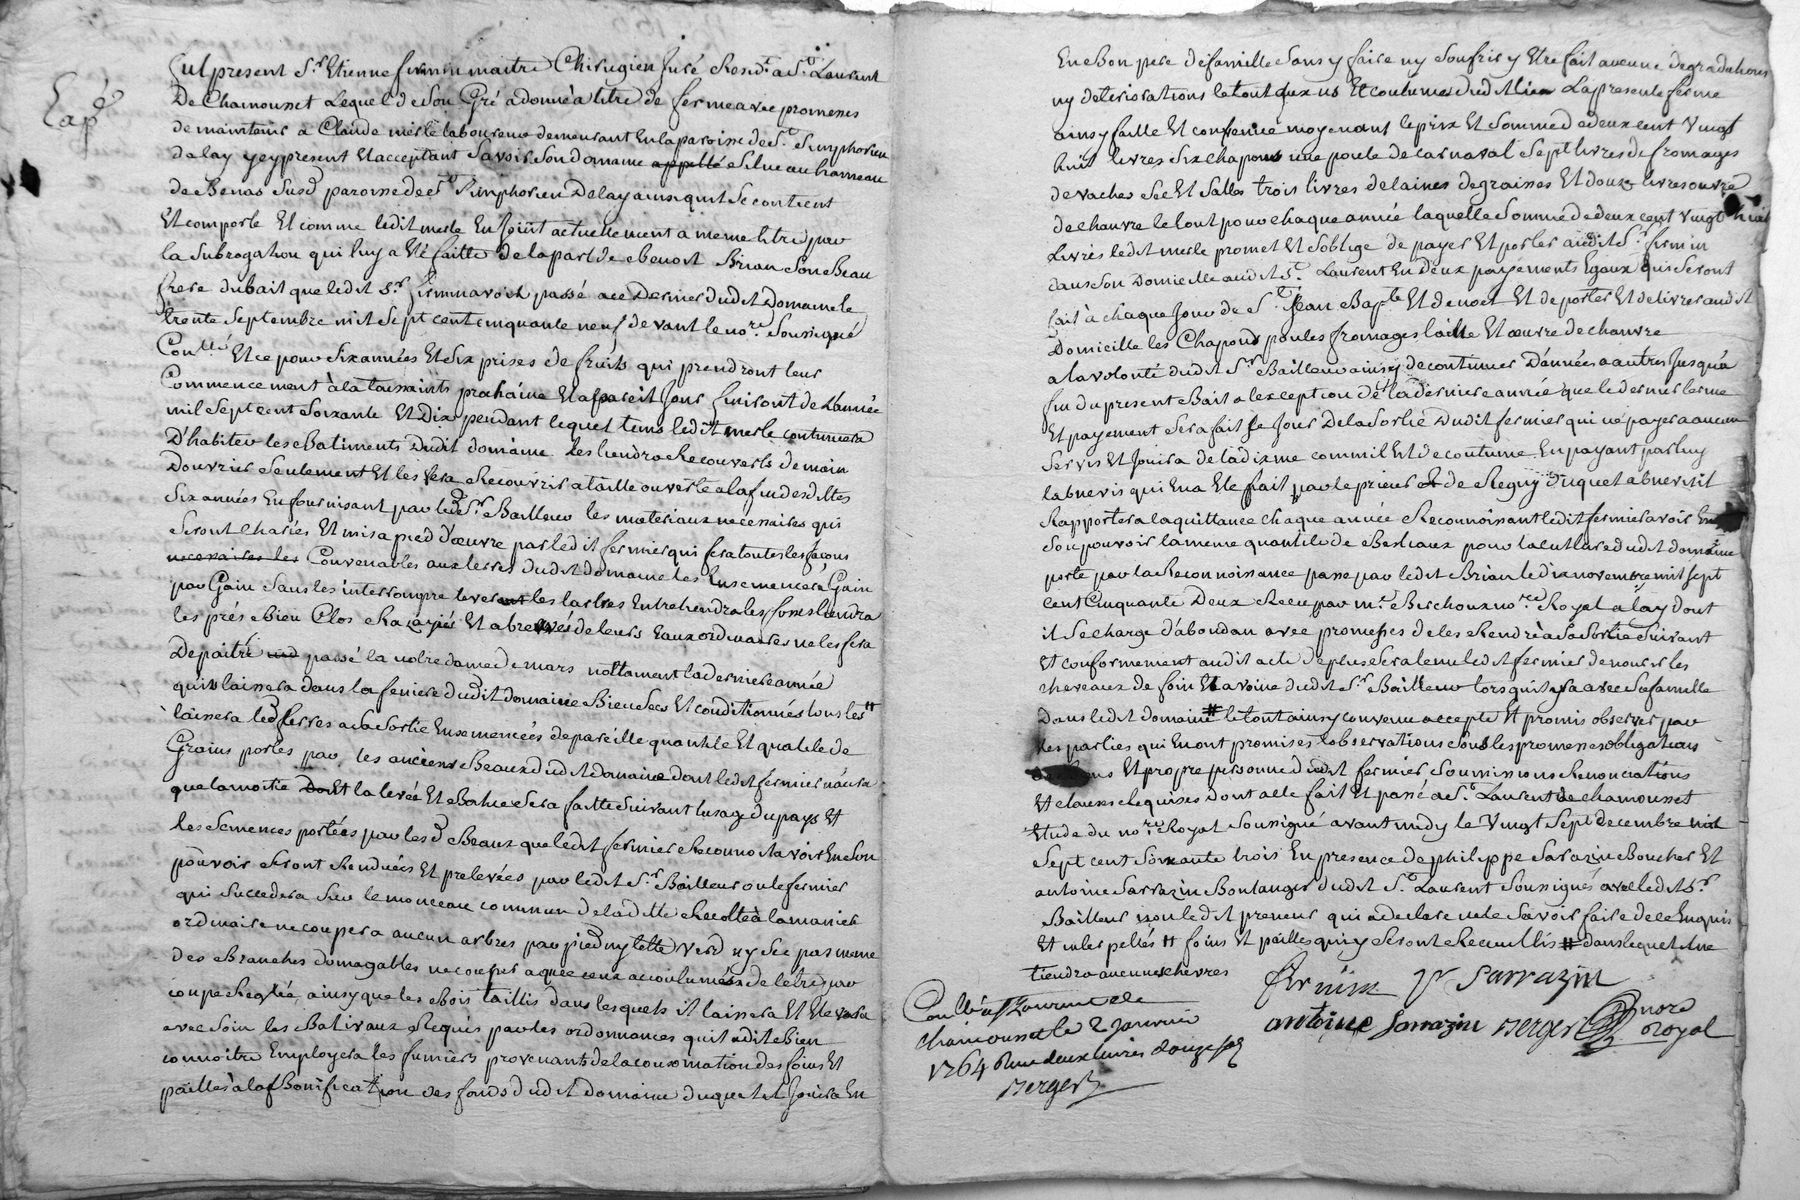 Exp
Fut present Sr Etienne firmin maitre Chirugien Juré Residt a St Laurent
De Chamousset Lequel de Son Gré a donné a titre de ferme avec promesses
de maintenir a Claude merle laboureur demeurant En la paroisse de St Simphorien
de lay y cy present Et acceptant Savoir Son domaine appellé Situé au hameau
de Benas Susd paroisse de St Simphorien De lay ainsi quil Se contient
Et comporte Et comme ledit merle En Joüit actuellement a meme titre par
la Subrogation qui luy a Eté faitte de la part de benoit Brian Son Beau
frere du bail que ledit Sr firmin avoit passé a ce Dernier dudit Domaine le
trente Septembre mil Sept cent cinquante neuf de vant le nore Sousigné
Conllé Et ce pour Six années Et Six prises de fruits qui prendront leur
Commencement à la toussaints prochaine Et a pareil Jour finiront de L'année
mil Sept cent Soixante Et Dix pendant lequel tems ledit merle continuera
D'habiter les Batiments Dudit domaine les tiendra Recouverts de main
Douvrier Seulement Et les fera Recouvrir a taille ouverte a la fin desdittes
Six années En fournissant par ledt Sr Bailleur les materiaux necessaires qui
Seront Chariés Et mis a pied d'œuvre par ledit fermier qui fera toutes les façons
necessaires les Convenables aux terres dudit domaine les Ensemencera Grain
par Grain Sans les interrompre levera les Entretiendra les fossés tiendra
les prés bien Clos Et abreuvés de leurs Eaux ordinaires ne les fera
Depaitre passé la notre dame de mars nottament la derniere année
quil laissera dans la feniere dudit domaine Bien Secs Et conditionnés tous les #
laissera led terres a Sa Sortie Ensemencées de pareille quantité Et qualité de
Grains portés par les anciens Beaux dudit domaine dont ledit fermier n'aura
que la moitié Dont la levée Et Batue Sera faitte Suivant lusage du pays Et
les Semences portées par lesd Beaux que ledit fermier Reconnoit avoir En Son
pouvoir Seront Renduées Et prelevées par ledit Sr Bailleur ou le fermier
qui Succedera Sur le monceau commun de laditte Recolte à la maniere
ordinaire ne coupera aucun arbres par pied ny tette Verd ny Sec pas meme
des Branches domagables ne couper a que ceux accoutumés de letre par
coupe Reglée, ainsy que les bois taillis dans lesquels il laissera Et Elevera
avec Soin les Balivaux Requis par les ordonnances quil a dit bien
connoitre Employera les fumiers provenants de la consomation des foins Et
pailles à la Bonification des fonds dudit domaine duquel il Jouira En
En Bon pere de famille Sans y faire ny Soufrir y Etre fait aucune degradations
ny deteriorations le tout aux us Et coutumes dudit lieu La presente ferme
ainsy faitte Et convenue moyenant le prix Et Somme de deux cent Vingt
huit livres Six chapons une poule de carnaval Sept livres de fromages
de vaches Sec Et Sallés trois livres de laines degraisses Et douze livres ouvre
de chauvre le tout pour chaque année laquelle Somme de deux cent Vingt huit
Livres ledit merle promet Et Soblige de payer Et porter audit Sr firmin
dans Son Domicille audit St Laurent En deux payements Egaux qui Seront
fait à chaque Jour de St Jean Bapte Et de noel Et de porter Et delivrer audit
Domicille les Chapons poules fromages laine Et œuvre de chanvre
a la volonté dudit Sr Bailleur ainsy de continuer D'années a autres Jusqu'a
fin du present Bail a lexception de la derniere année que le dernier terme
Et payement Sera fait le Jour De la Sortie Dudit fermier qui ne payera aucun
Servis Et Jouira de la dixme comm'il Est de coutume En payant par luy
labnevis qui En a Eté fait par le prieur de Regny duquel abnevis il
Rapportera la quittance chaque année Reconnoissant ledit fermier avoir En
Son pouvoir la meme quantité de Bestiaux pour la culture dudit domaine
porté par la Reconnoissance passé par ledit Brian le dix novembre mil Sept
cent Cinquante Deux Receu par me Berchoux nore Royal a lay dont
il Se charge d'abondan avec promesses de les Rendre à Sa Sortie Suivant
Et conformement audit acte De plus Sera tenu ledit fermier de nourir les
chevaux de foin Et avoine dudit Sr Bailleur lorsqu'il yra avec Sa famille
Dans ledit domaine # le tout ainsy convenu accepté Et promis observer par
les parties qui En ont promises lobservations Sous les promesses obligations
Et propre personne dudit fermier Soumissions Renonciations
Et clauses Requises dont acte fait Et passé a St Laurent de chamousset
Etude du nore Royal Sousigné avant midy le Vingt Sept decembre mil
Sept cent Soixante trois En presence de philippe Sarazin Boucher Et
antoine Sarrazin Boulanger dudit St Laurent Sousignés avec ledit Sr
Bailleur non ledit preneur qui a declaré ne le Savoir faire de ce Enquis
Et interpellés # foins Et pailles qui y Seront Recueillis # dans lequel il ne
tiendra aucunes chevres
firmin P Sarrazin
antoine Sarrazin Berger nore Royal
Conllé a St Laurent de
chamousset le 2 Janvier
1764 Reçu deux livres douze sols
Berger